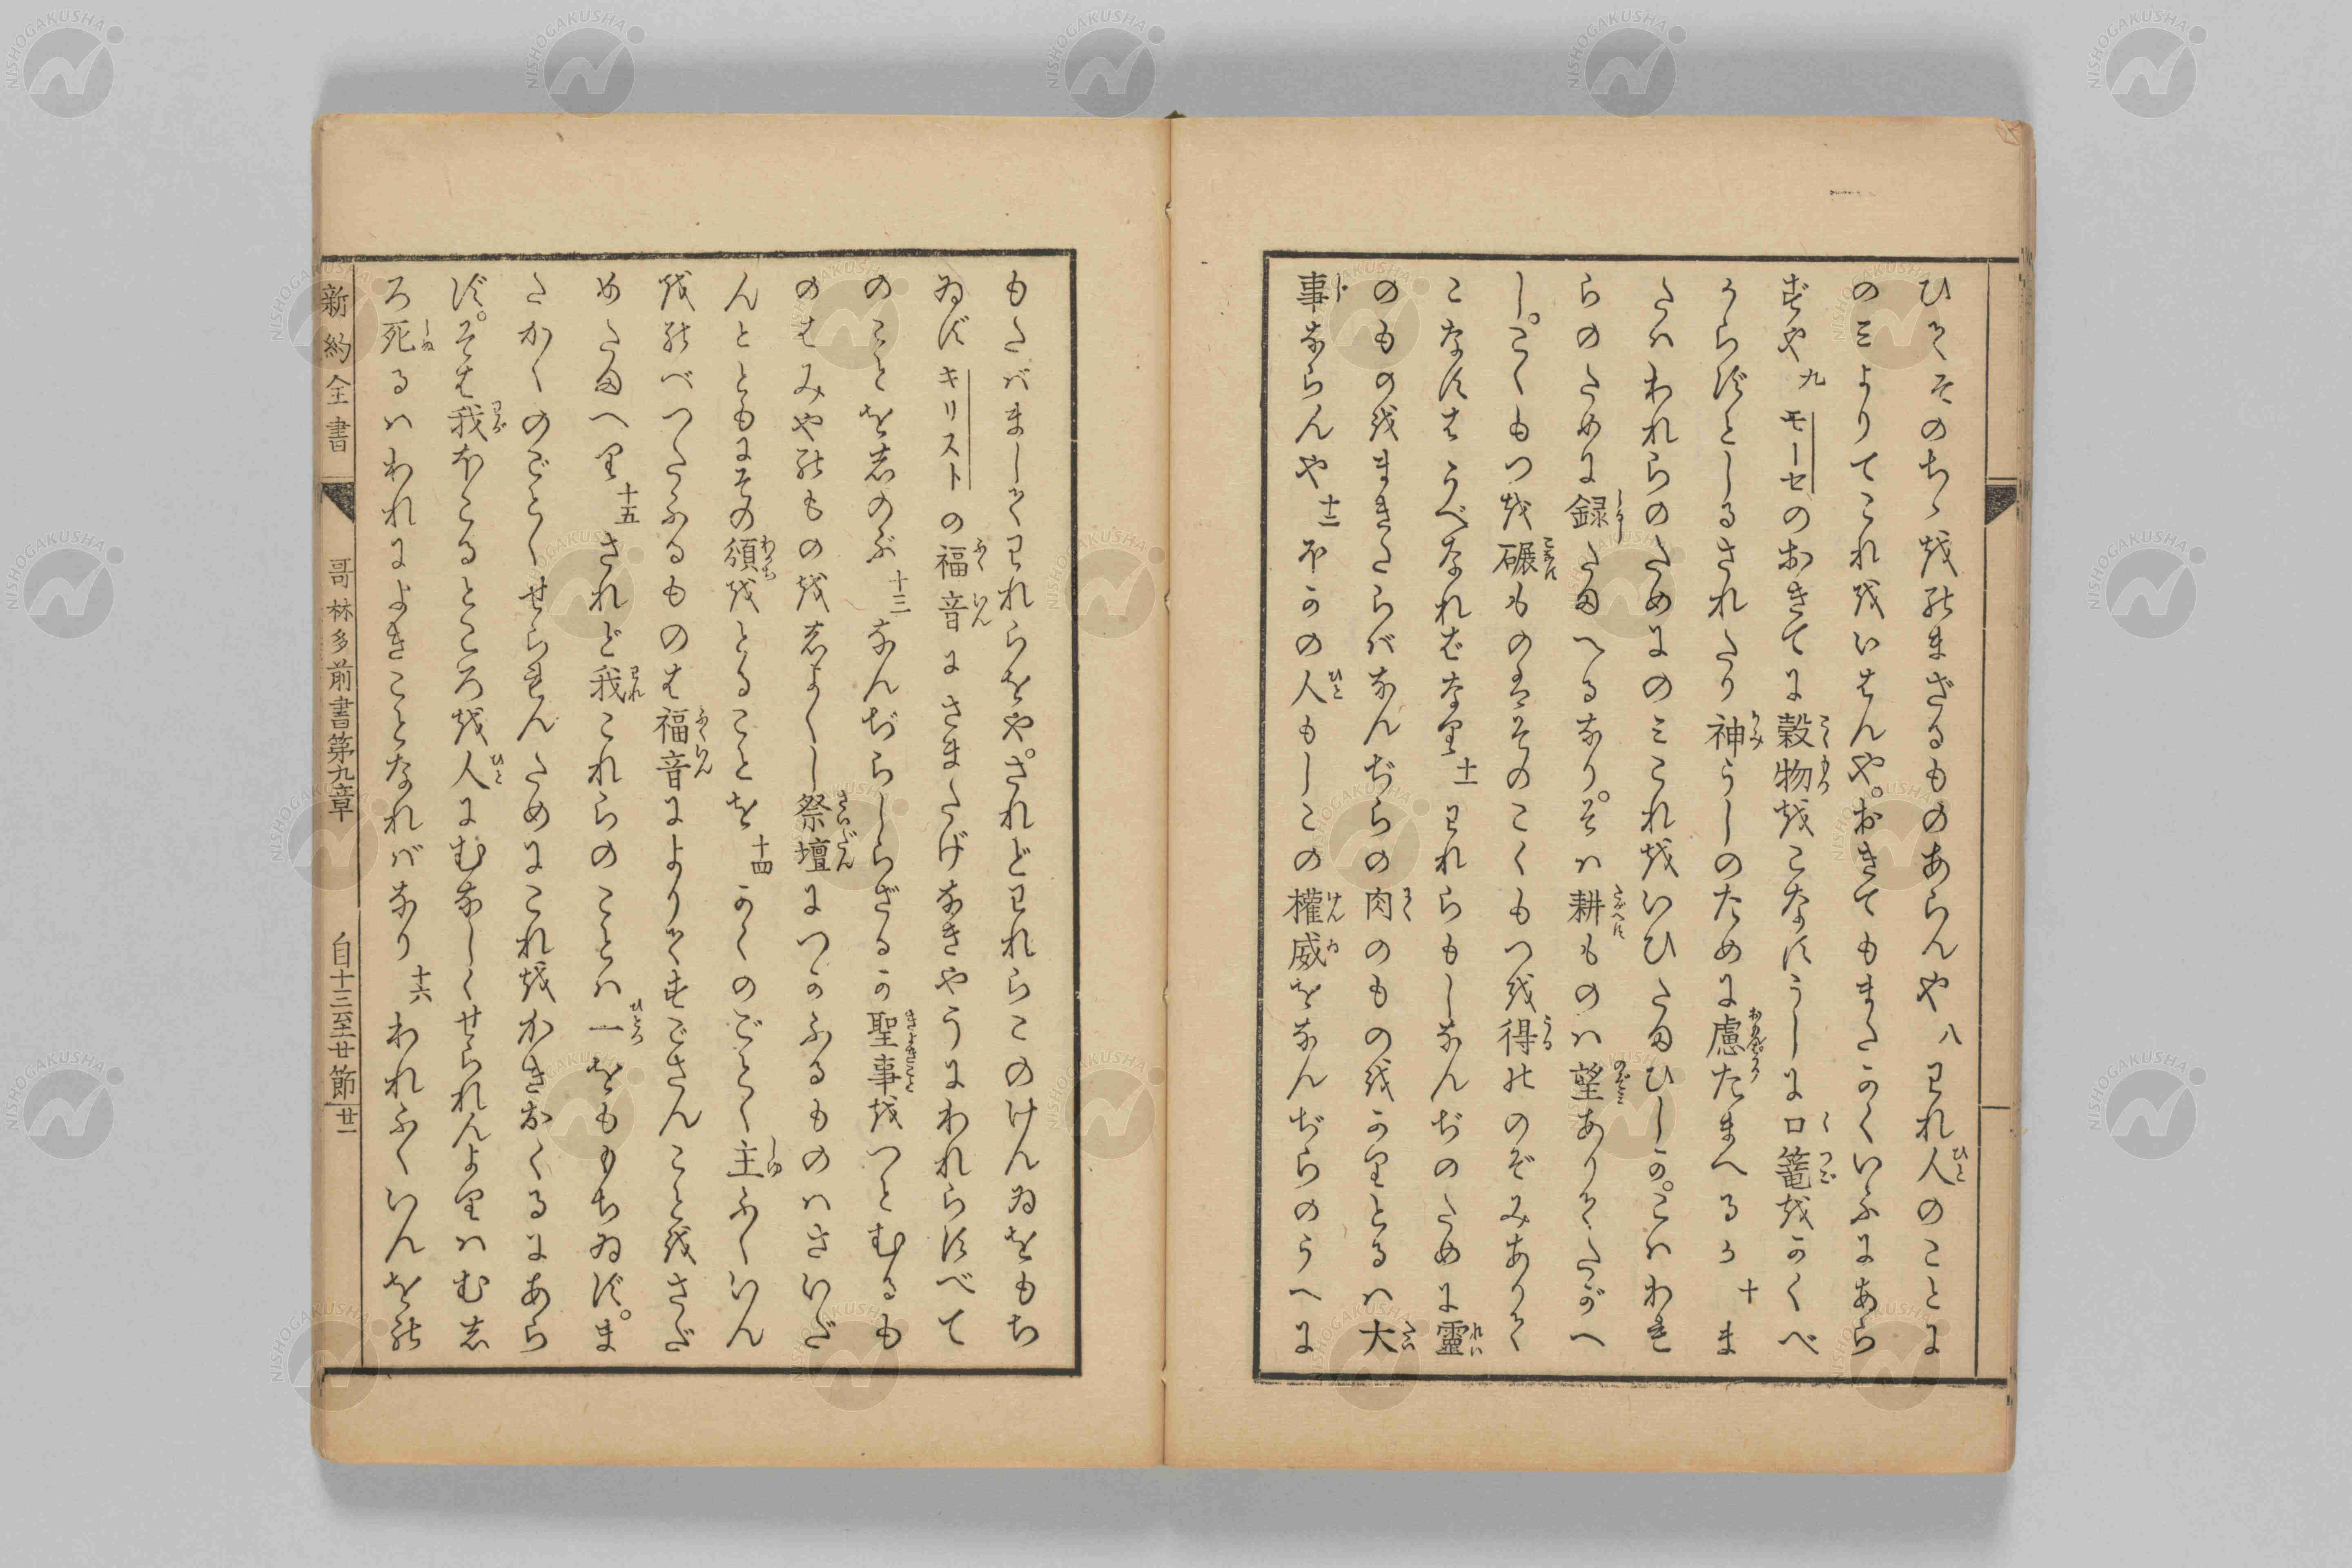 ひてそのちゝをのまざるものあらんや 八 われ人のことに
のミよりてこれをいはんや。おきてもまたかくいふにあら
ずや 九 モーセのおきてに穀物をこなすうしに口篭をかくべ
からずとしるされたり神うしのために慮たまへるか 十 ま
たハわれらのためにのミこれをいひたまひしか。こハわれ
らのために録たまへるなり。そハ耕ものハ望ありてたがへ
し。こくもつを碾ものはそのこくもつを得のぞみありて
こなすはうべなればなり 十一 われらもしなんぢのために靈
のものをまきたらばなんぢらの肉のものをかりとるハ大
事ならんや 十二 ほかの人もしこの權威をなんぢらのうへに
もたばましてわれらをや。されどわれらこのけんゐをもち
ゐず キリストの福音にさまたげなきやうにわれらすべて
のことを志のぶ 十三 なんぢらしらざるか聖事をつとむるも
のはみやのものを志よくし祭壇につかふるものハさいだ
んとともにその頒をとることを 十四 かくのごとく主ふくいん
をのべつたふるものは福音によりてすごさんことをさだ
めたまへり 十五 されど我これらのことハ一をももちゐず。ま
たかくのごとくせられんためにこれをかきおくるにあら
ず。そは我ほこるところを人にむなしくせられんよりハむ志
ろ死るハわれによきことなればなり 十六 われふくいんをの
新約全書 哥林多前書第九章 自十三至廿節 廿一